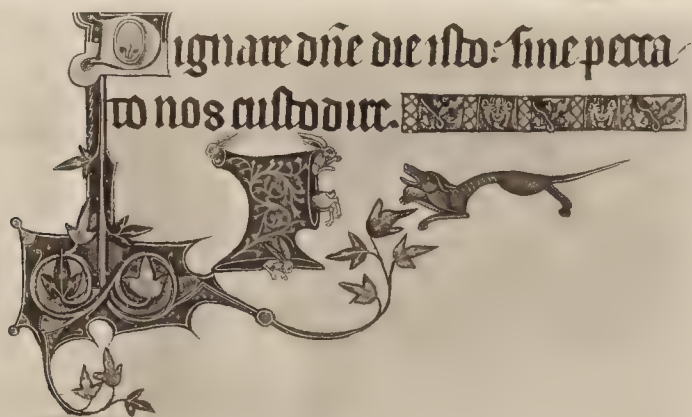 Dignare dñe die isto: sine pecca-
to nos custodire.